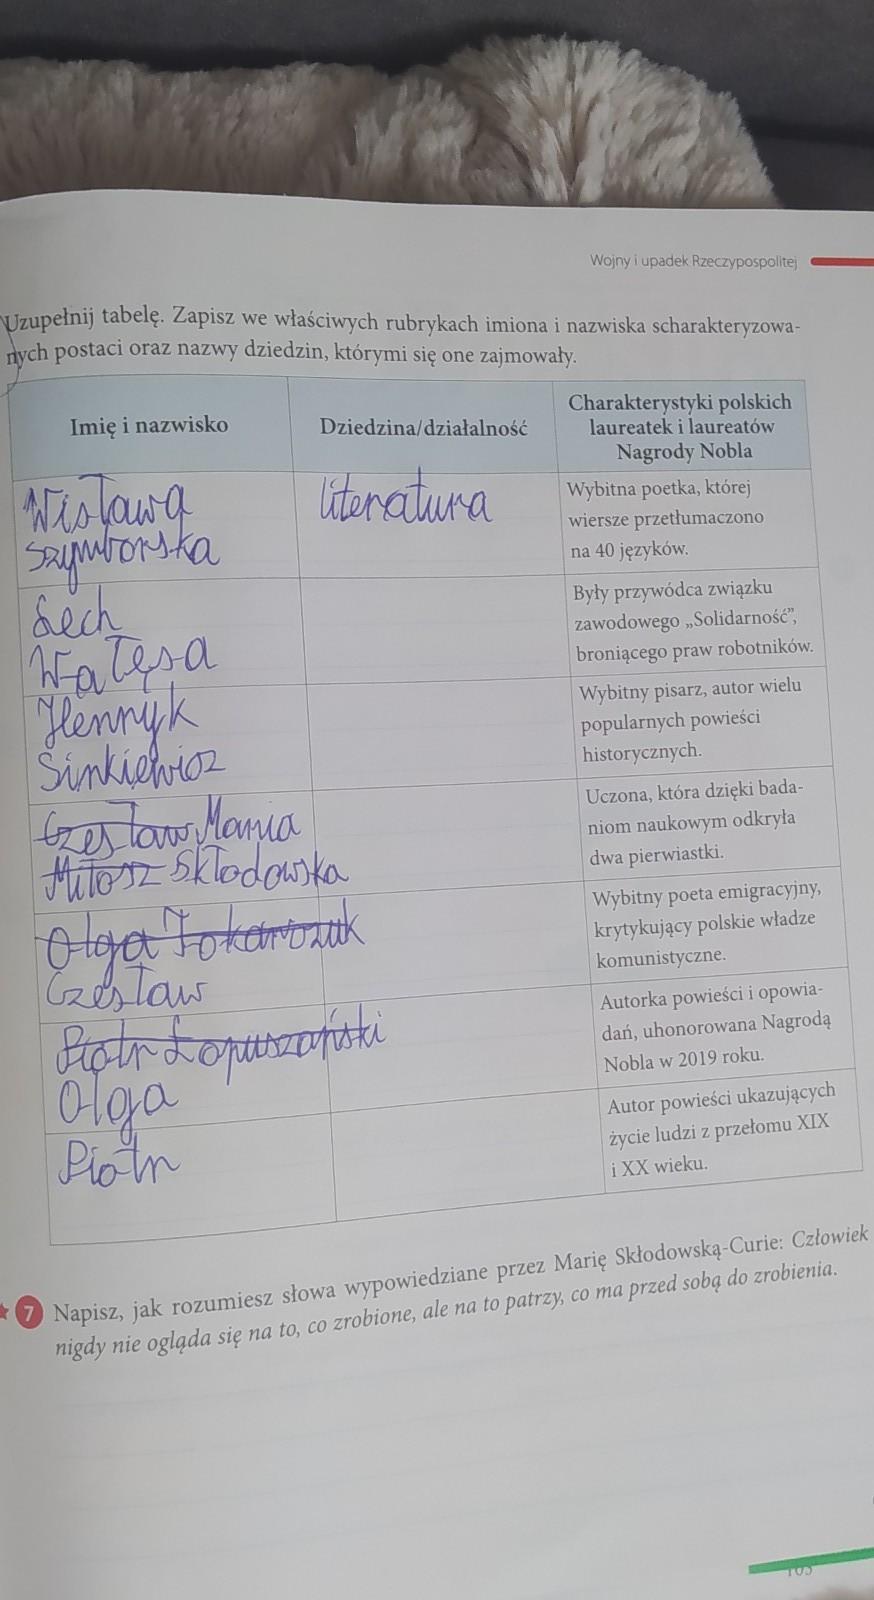 Wojny i upadek Rzeczypospolitej
Uzupełnij tabelę. Zapisz we właściwych rubrykach imiona i nazwiska scharakteryzowa-
nych postaci oraz nazwy dziedzin, którymi się one zajmowały.
Imię i nazwisko
Dziedzina/działalność
Charakterystyki polskich
laureatek i laureatów
Nagrody Nobla
Wisława
Szymborska
literatura
Wybitna poetka, której
wiersze przetłumaczono
na 40 języków.
Lech
Wałęsa
Były przywódca związku
zawodowego „Solidarność”,
broniącego praw robotników.
Henryk
Sinkiewicz
Wybitny pisarz, autor wielu
popularnych powieści
historycznych.
Czesław Maria
Miłosz Skłodowska
Uczona, która dzięki bada-
niom naukowym odkryła
dwa pierwiastki.
Olga Tokarczuk
Czesław
Wybitny poeta emigracyjny,
krytykujący polskie władze
komunistyczne.
Piotr Łopuszański
Olga
Autorka powieści i opowia-
dań, uhonorowana Nagrodą
Nobla w 2019 roku.
Piotr
Autor powieści ukazujących
życie ludzi z przełomu XIX
i XX wieku.
7 Napisz, jak rozumiesz słowa wypowiedziane przez Marię Skłodowską-Curie: Człowiek
nigdy nie ogląda się na to, co zrobione, ale na to patrzy, co ma przed sobą do zrobienia.